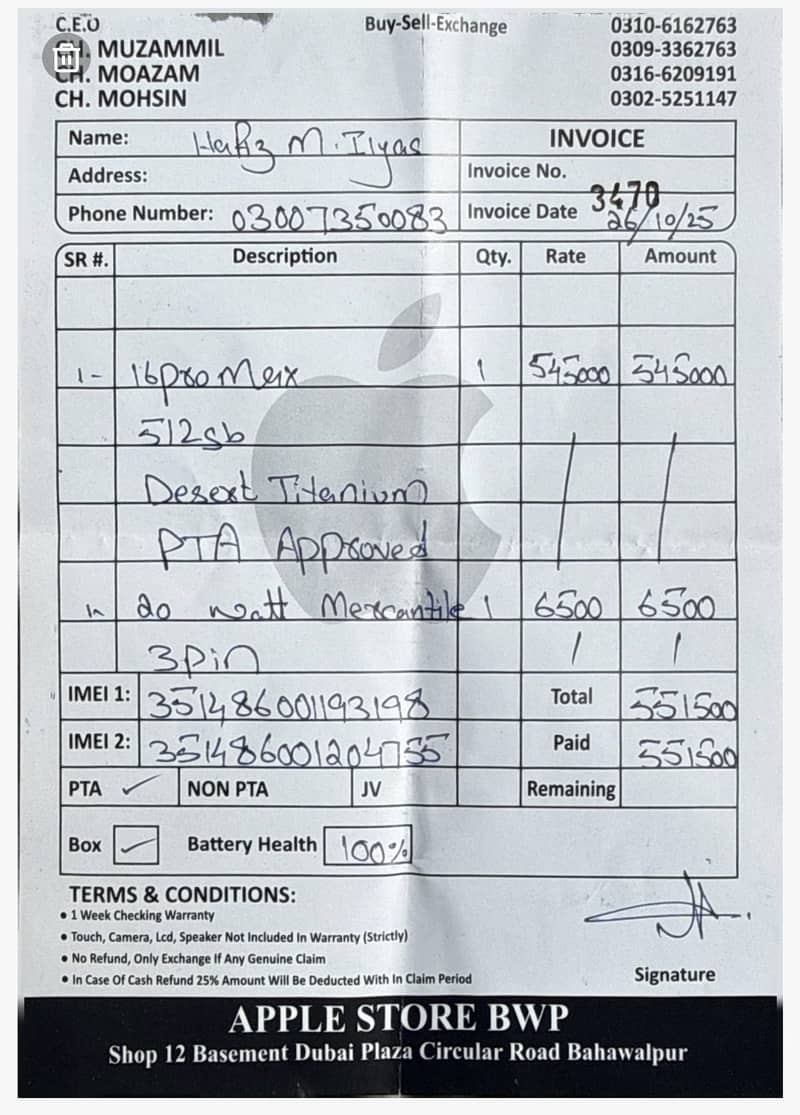 C.E.O Buy-Sell-Exchange 0310-6162763
CH. MUZAMMIL 0309-3362763
CH. MOAZAM 0316-6209191
CH. MOHSIN 0302-5251147
Name: Hafiz M. Ilyas INVOICE
Address: Invoice No. 3470
Phone Number: 03007350083 Invoice Date 26/10/25
SR #. Description Qty. Rate Amount
1- 16pro Max 1 545000 545000
512gb
Desert Titanium
PTA Approved
20 Watt Mercantile 1 6500 6500
3pin
IMEI 1: 351486001193198 Total 551500
IMEI 2: 351486001204755 Paid 551500
PTA ✓ NON PTA JV Remaining
Box ✓ Battery Health 100%
TERMS & CONDITIONS:
• 1 Week Checking Warranty
• Touch, Camera, Lcd, Speaker Not Included In Warranty (Strictly)
• No Refund, Only Exchange If Any Genuine Claim
• In Case Of Cash Refund 25% Amount Will Be Deducted With In Claim Period
Signature
APPLE STORE BWP
Shop 12 Basement Dubai Plaza Circular Road Bahawalpur